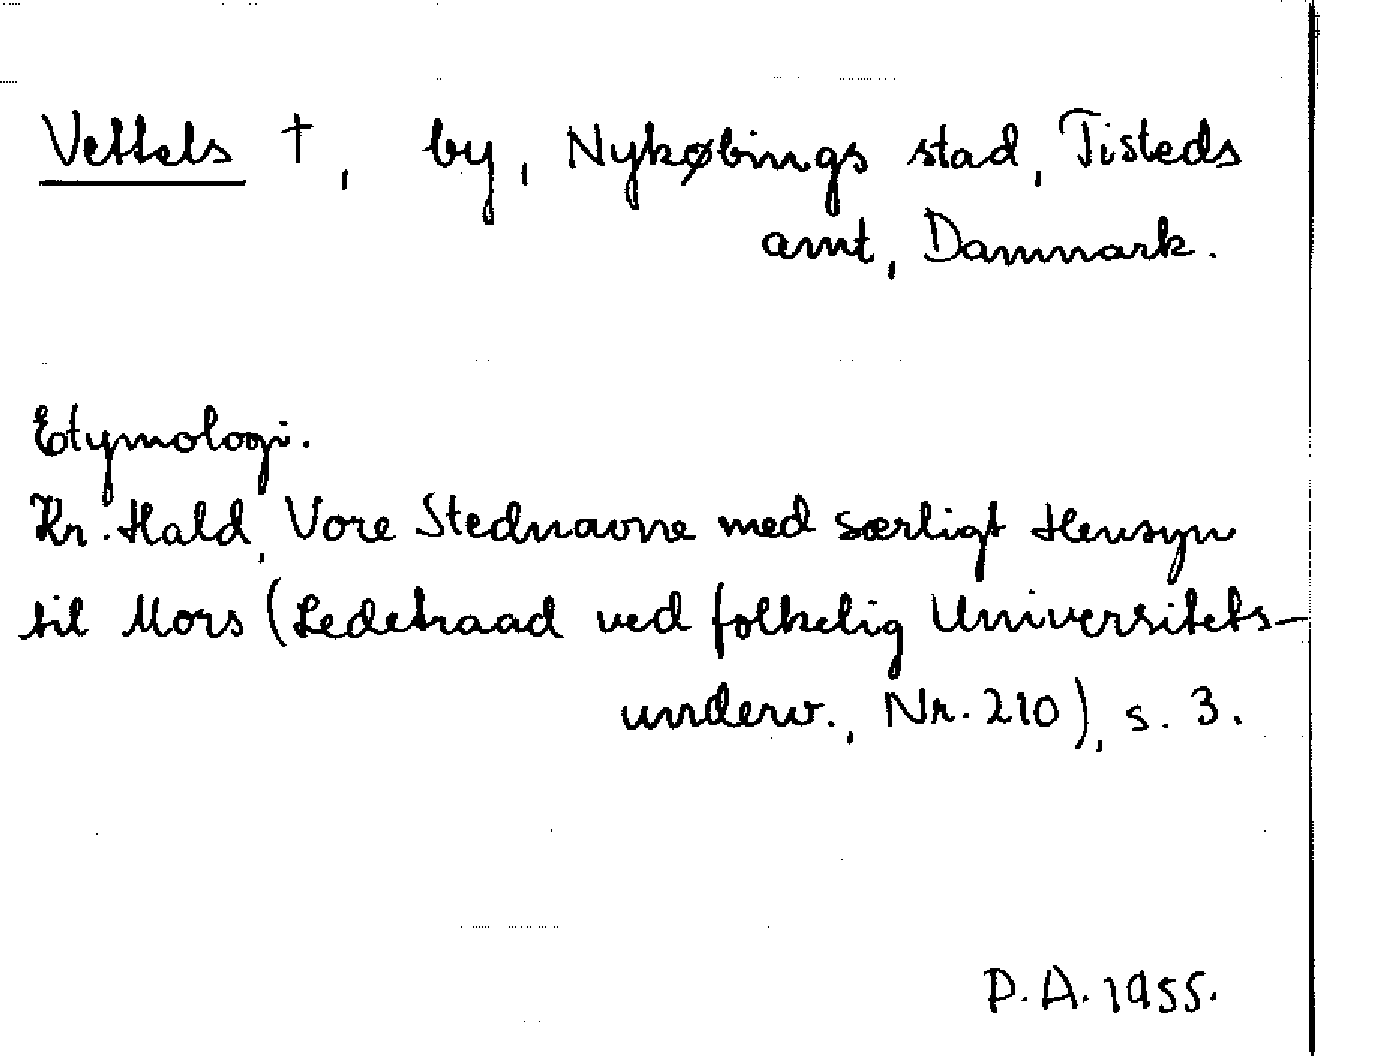 Vettels †, by, Nykøbings stad, Tisteds
amt, Danmark.
Etymologi.
Kr. Hald, Vore Stednavne med særligt Hensyn
til Mors (Ledetraad ved folkelig Universitets-
underv., Nr. 210), s. 3.
P.A. 1955.